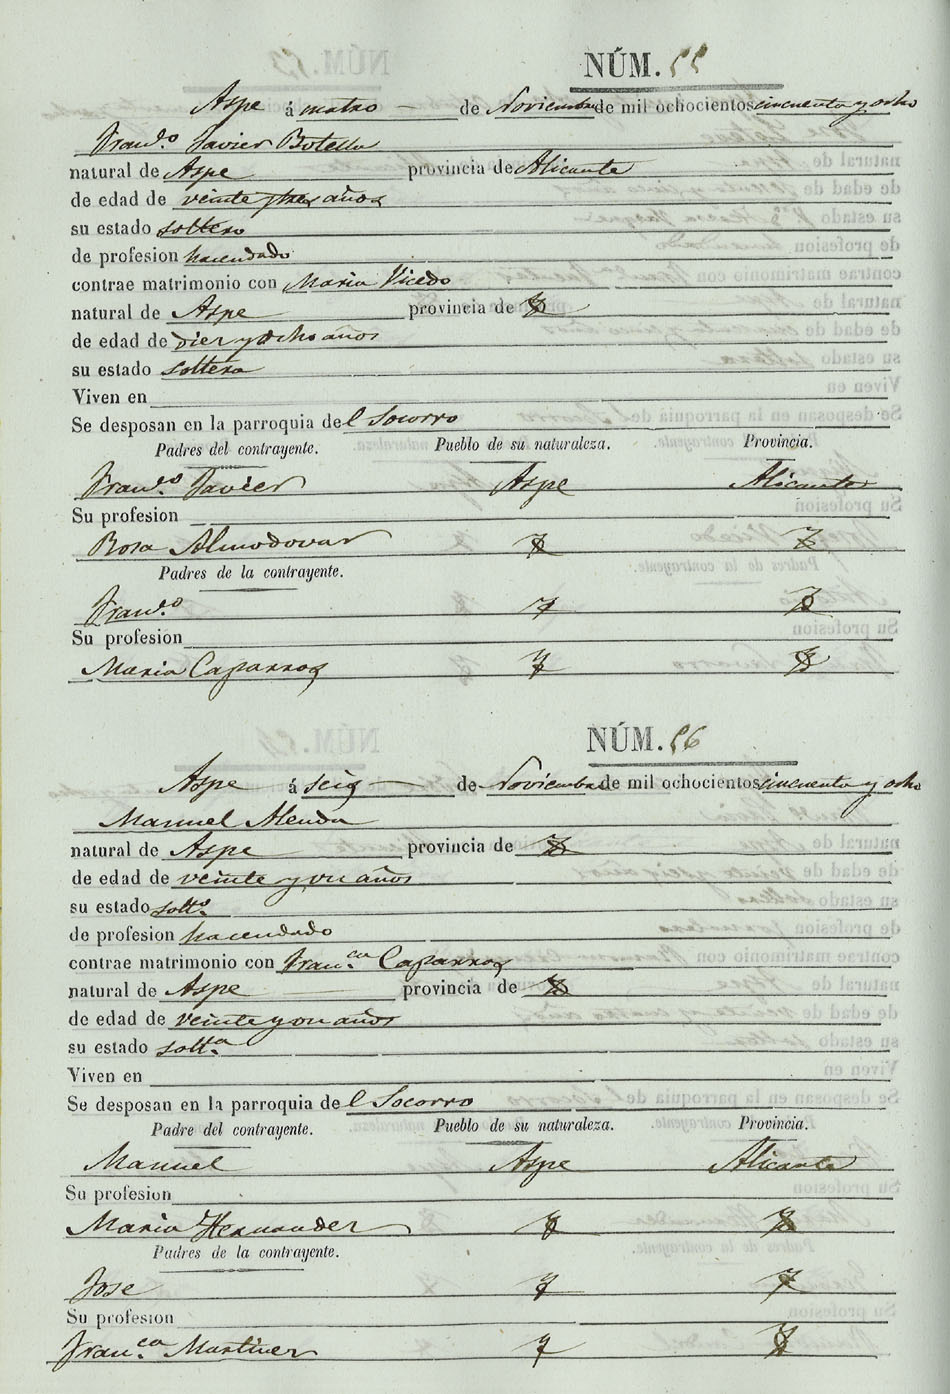 NÚM. 55
Aspe á cuatro de Noviembre de mil ochocientos cincuenta y ocho
Franco. Javier Botella
natural de Aspe provincia de Alicante
de edad de veinte y tres años
su estado soltero
de profesion hacendado
contrae matrimonio con Maria Vicedo
natural de Aspe provincia de
de edad de diez y ocho años
su estado soltera
Viven en
Se desposan en la parroquia del Socorro
Padres del contrayente. Pueblo de su naturaleza. Provincia.
Franco. Javier Aspe Alicante
Su profesion
Rosa Almodovar
Padres de la contrayente.
Franco.
Su profesion
Maria Caparros
NÚM. 56
Aspe á seis de Noviembre de mil ochocientos cincuenta y ocho
Manuel Alenda
natural de Aspe provincia de
de edad de veinte y un años
su estado solto.
de profesion hacendado
contrae matrimonio con Franca. Caparros
natural de Aspe provincia de
de edad de veinte y un años
su estado solta.
Viven en
Se desposan en la parroquia del Socorro
Padre del contrayente. Pueblo de su naturaleza. Provincia.
Manuel Aspe Alicante
Su profesion
Maria Hernandez
Padres de la contrayente.
Jose
Su profesion
Franca. Martinez